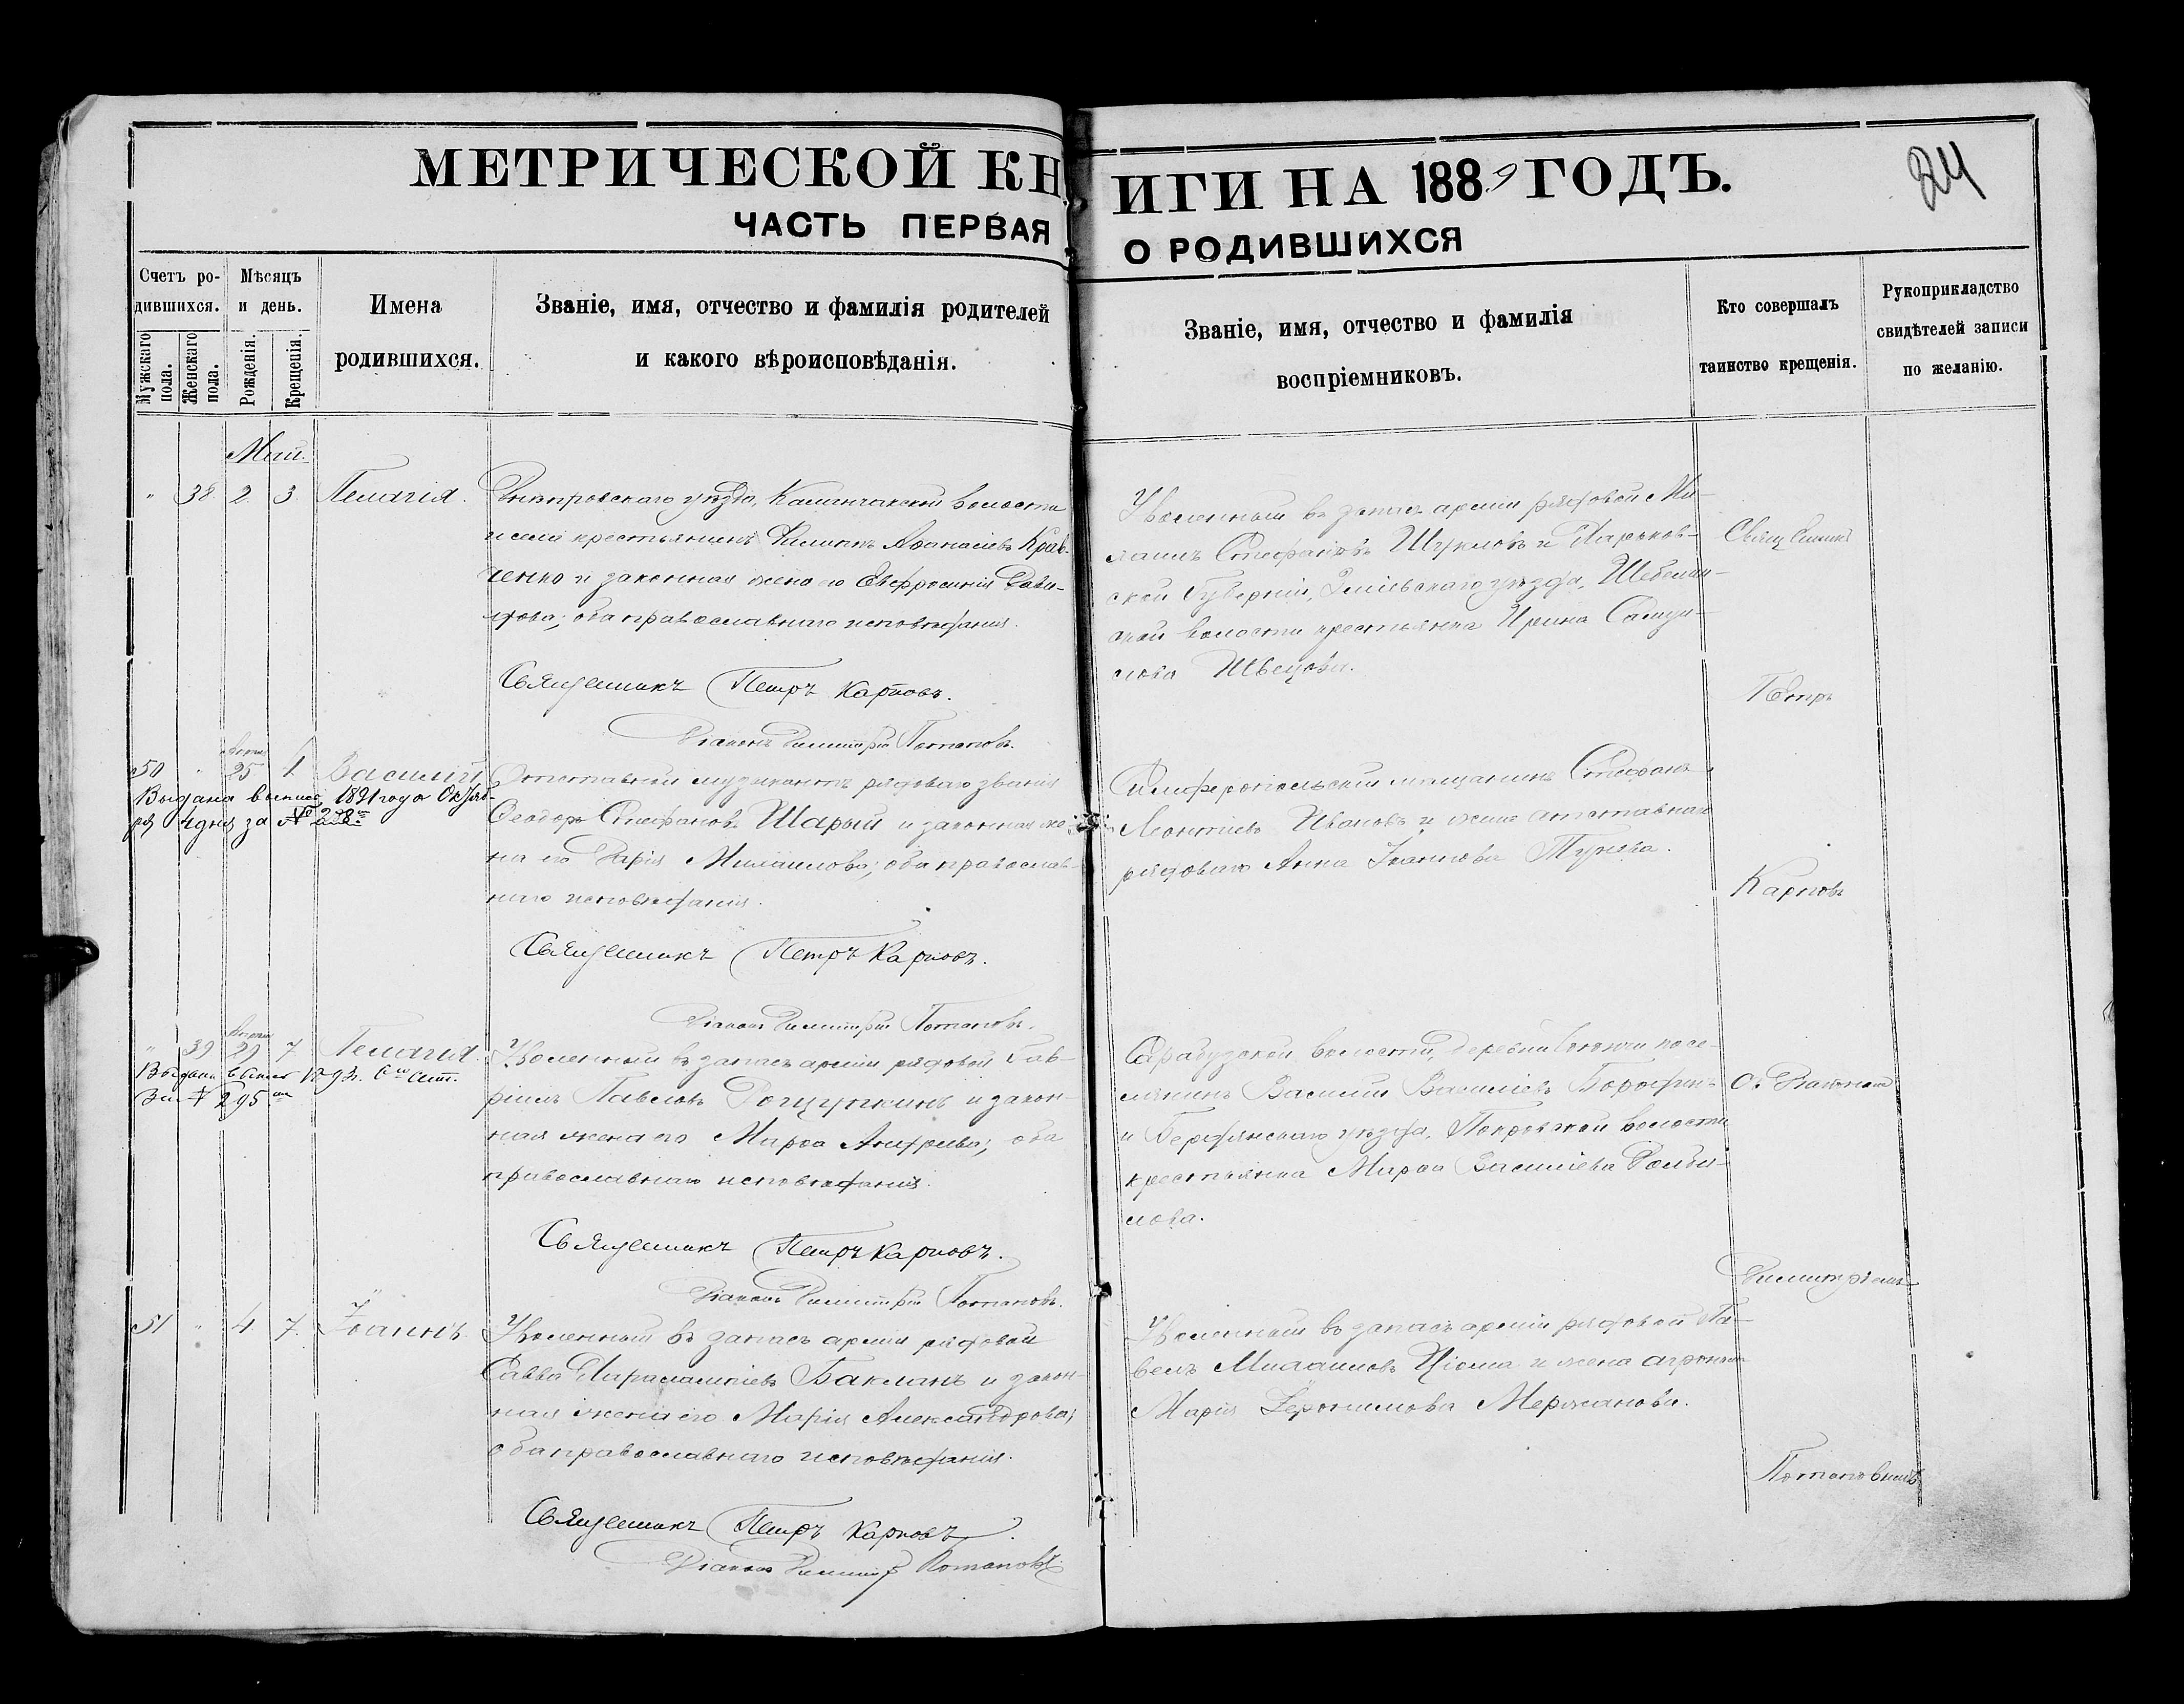 МЕТРИЧЕСКОЙ КНИГИ НА 1889 ГОДЪ.
24
ЧАСТЬ ПЕРВАЯ О РОДИВШИХСЯ
Счетъ ро-
дившихся.
Мужскаго пола.
Женскаго пола.
Мѣсяцъ
и день.
Рожденія.
Крещенія.
Имена
родившихся.
Званіе, имя, отчество и фамилія родителей
и какого вѣроисповѣданія.
Званіе, имя, отчество и фамилія
воспріемниковъ.
Кто совершалъ
таинство крещенія.
Рукоприкладство
свидѣтелей записи
по желанію.
Май.
" 38 2. 3. Пелагія.
Днѣпровскаго уѣзда, Каланчакской волости
и села крестьянинъ Филиппъ Аѳанасіевъ Крав-
ченко и законная жена его Евфросинія Дави-
дова; оба православнаго исповѣданія.
Священникъ Петръ Карповъ.
Діаконъ Димитрій Потаповъ.
Уволенный въ запасъ армій рядовой Ми-
хаилъ Стефановъ Шукловъ и Харьков-
ской Губерніи, Зміевскаго уѣзда, Шебелин-
ской волости крестьянка Ирина Самуи-
лова Швецова.
Священникъ
Петръ
Карповъ
50 " 25 4. Василій
Выдана выпись 1891 года Октяб-
ря 4 дня за № 278.
Отставной музыкантъ рядоваго званія
Ѳеодоръ Стефановъ Шарый и законная же-
на его Дарія Михаилова; оба православ-
наго исповѣданія.
Священникъ Петръ Карповъ.
Діаконъ Димитрій Потаповъ.
Симферопольскій мѣщанинъ Стефанъ
Леонтіевъ Ивановъ и жена отставнаго
рядоваго Анна Іоаннова
" 39 29 7 Пелагія.
Выдана выпись 1893 г. Сент.
За № 295
Уволенный въ запасъ арміи рядовой Гав-
ріилъ Павловъ Рощупкинъ и закон-
ная жена его Марѳа Андреева; оба
православнаго исповѣданія.
Священникъ Петръ Карповъ.
Діаконъ Димитрій Потаповъ.
Сарабузской волости, деревни посе-
лянинъ Василій Василіевъ
и Бердянскаго уѣзда, Покровской волости
крестьянка Марѳа Василіева
лова.
Съ Діакономъ
Димитріемъ
Потаповымъ
51 " 4. 7. Іоаннъ.
Уволенный въ запасъ арміи рядовой
Савва Харалампіевъ Бакланъ и закон-
ная жена его Марія Александрова;
оба православнаго исповѣданія.
Священникъ Петръ Карповъ.
Діаконъ Димитрій Потаповъ.
Уволенный въ запасъ арміи рядовой Па-
велъ Михаиловъ Цюма и жена агронома
Марія Іеронимова Мержанова.